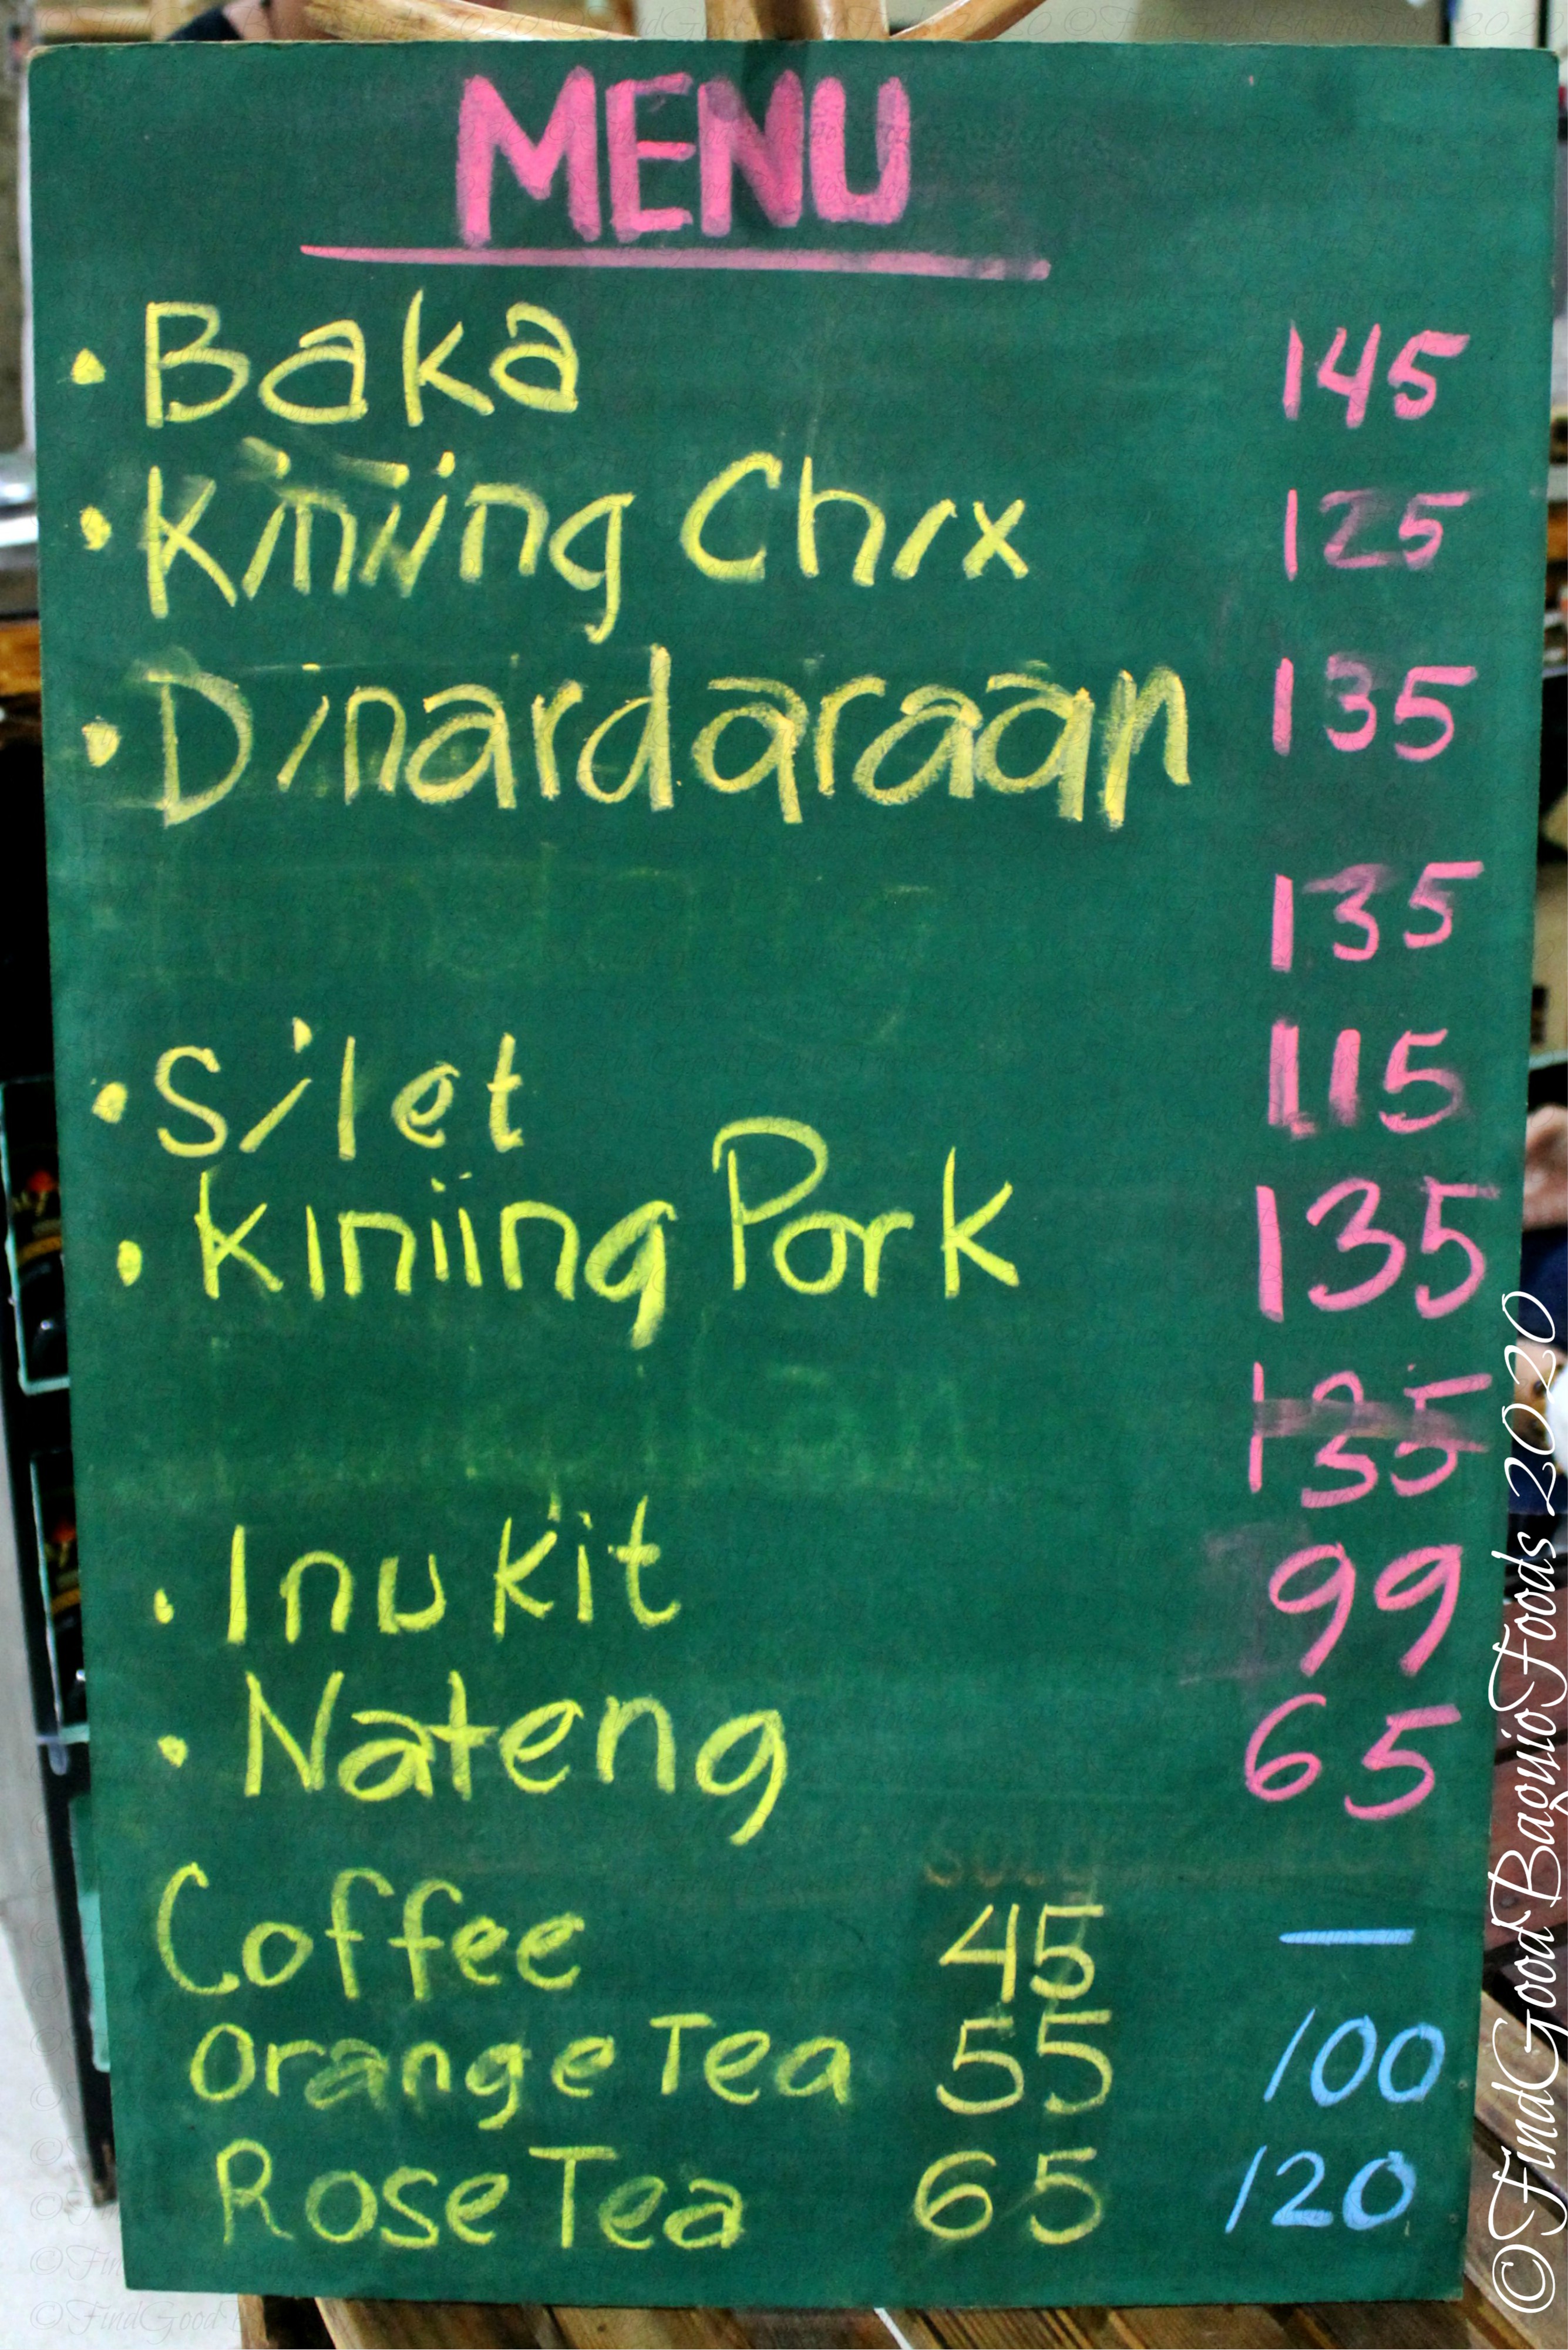 MENU
• Baka 145
• Kiniing Chix 125
• Dinardaraan 135
135
• Silet 115
• Kiniing Pork 135
135
• Inukit 99
• Nateng 65
Coffee 45 —
Orange Tea 55 100
Rose Tea 65 120
©FindGoodBaguioFoods 2020